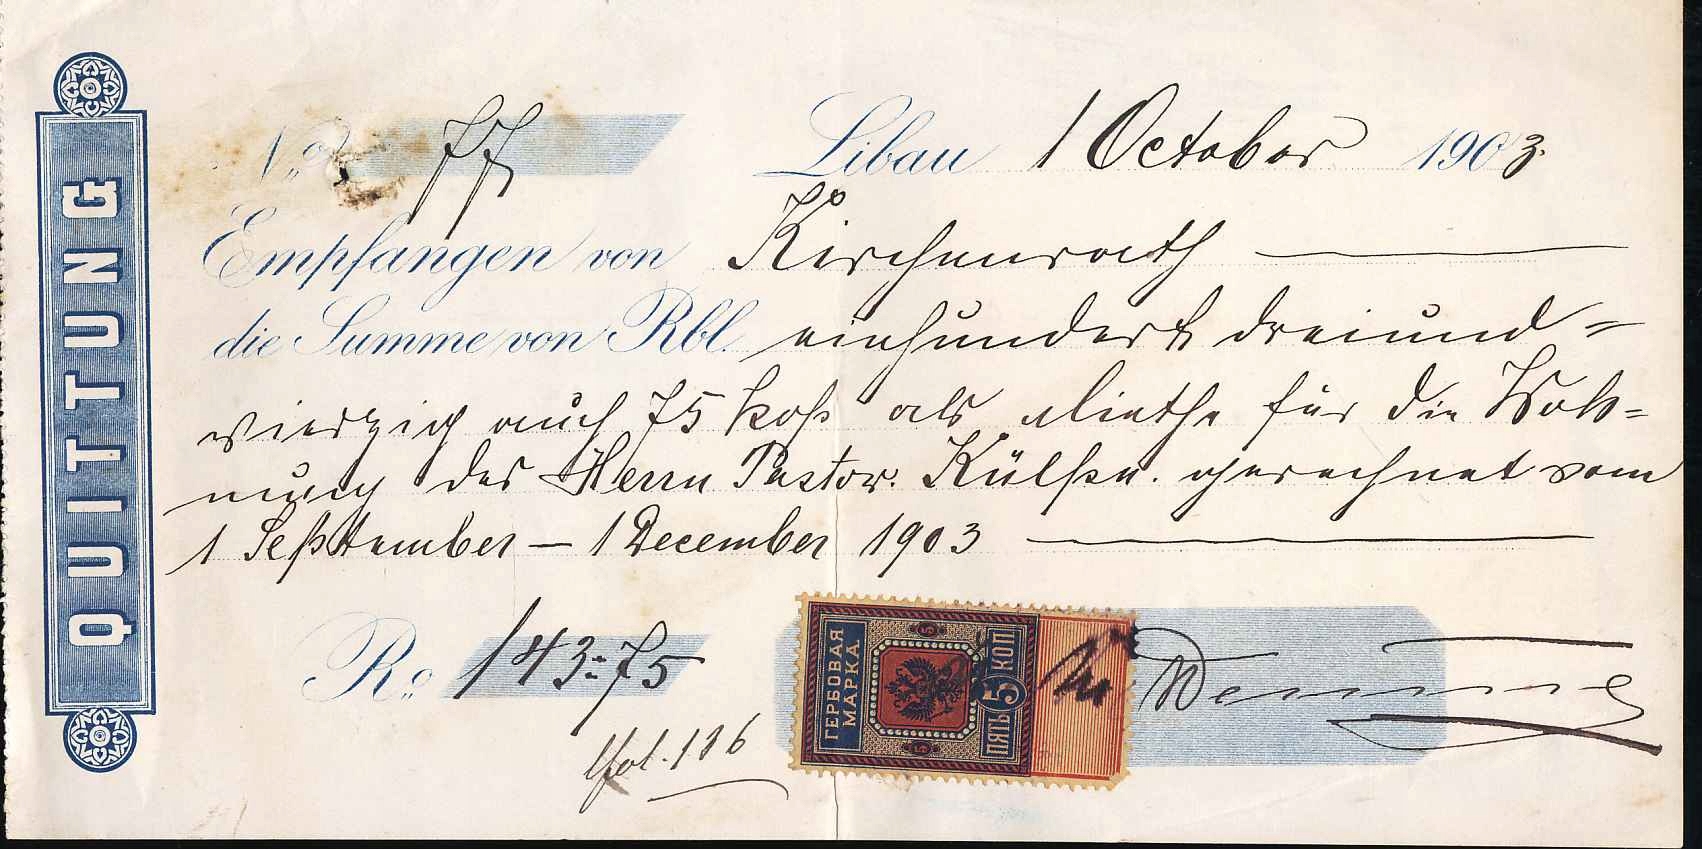 QUITTUNG
No 77 Libau 1 October 1903.
Empfangen von Kirchenrath
die Summe von Rbl. einhundert dreiund=
vierzig auch 75 Kop als Miethe für die Woh=
nung des Herrn Pastor. Külpe. gerechnet vom
1 September – 1 December 1903
Ro 143=75
ГЕРБОВАЯ
МАРКА
5
5
ПЯТЬ 5 КОП
fol. 116